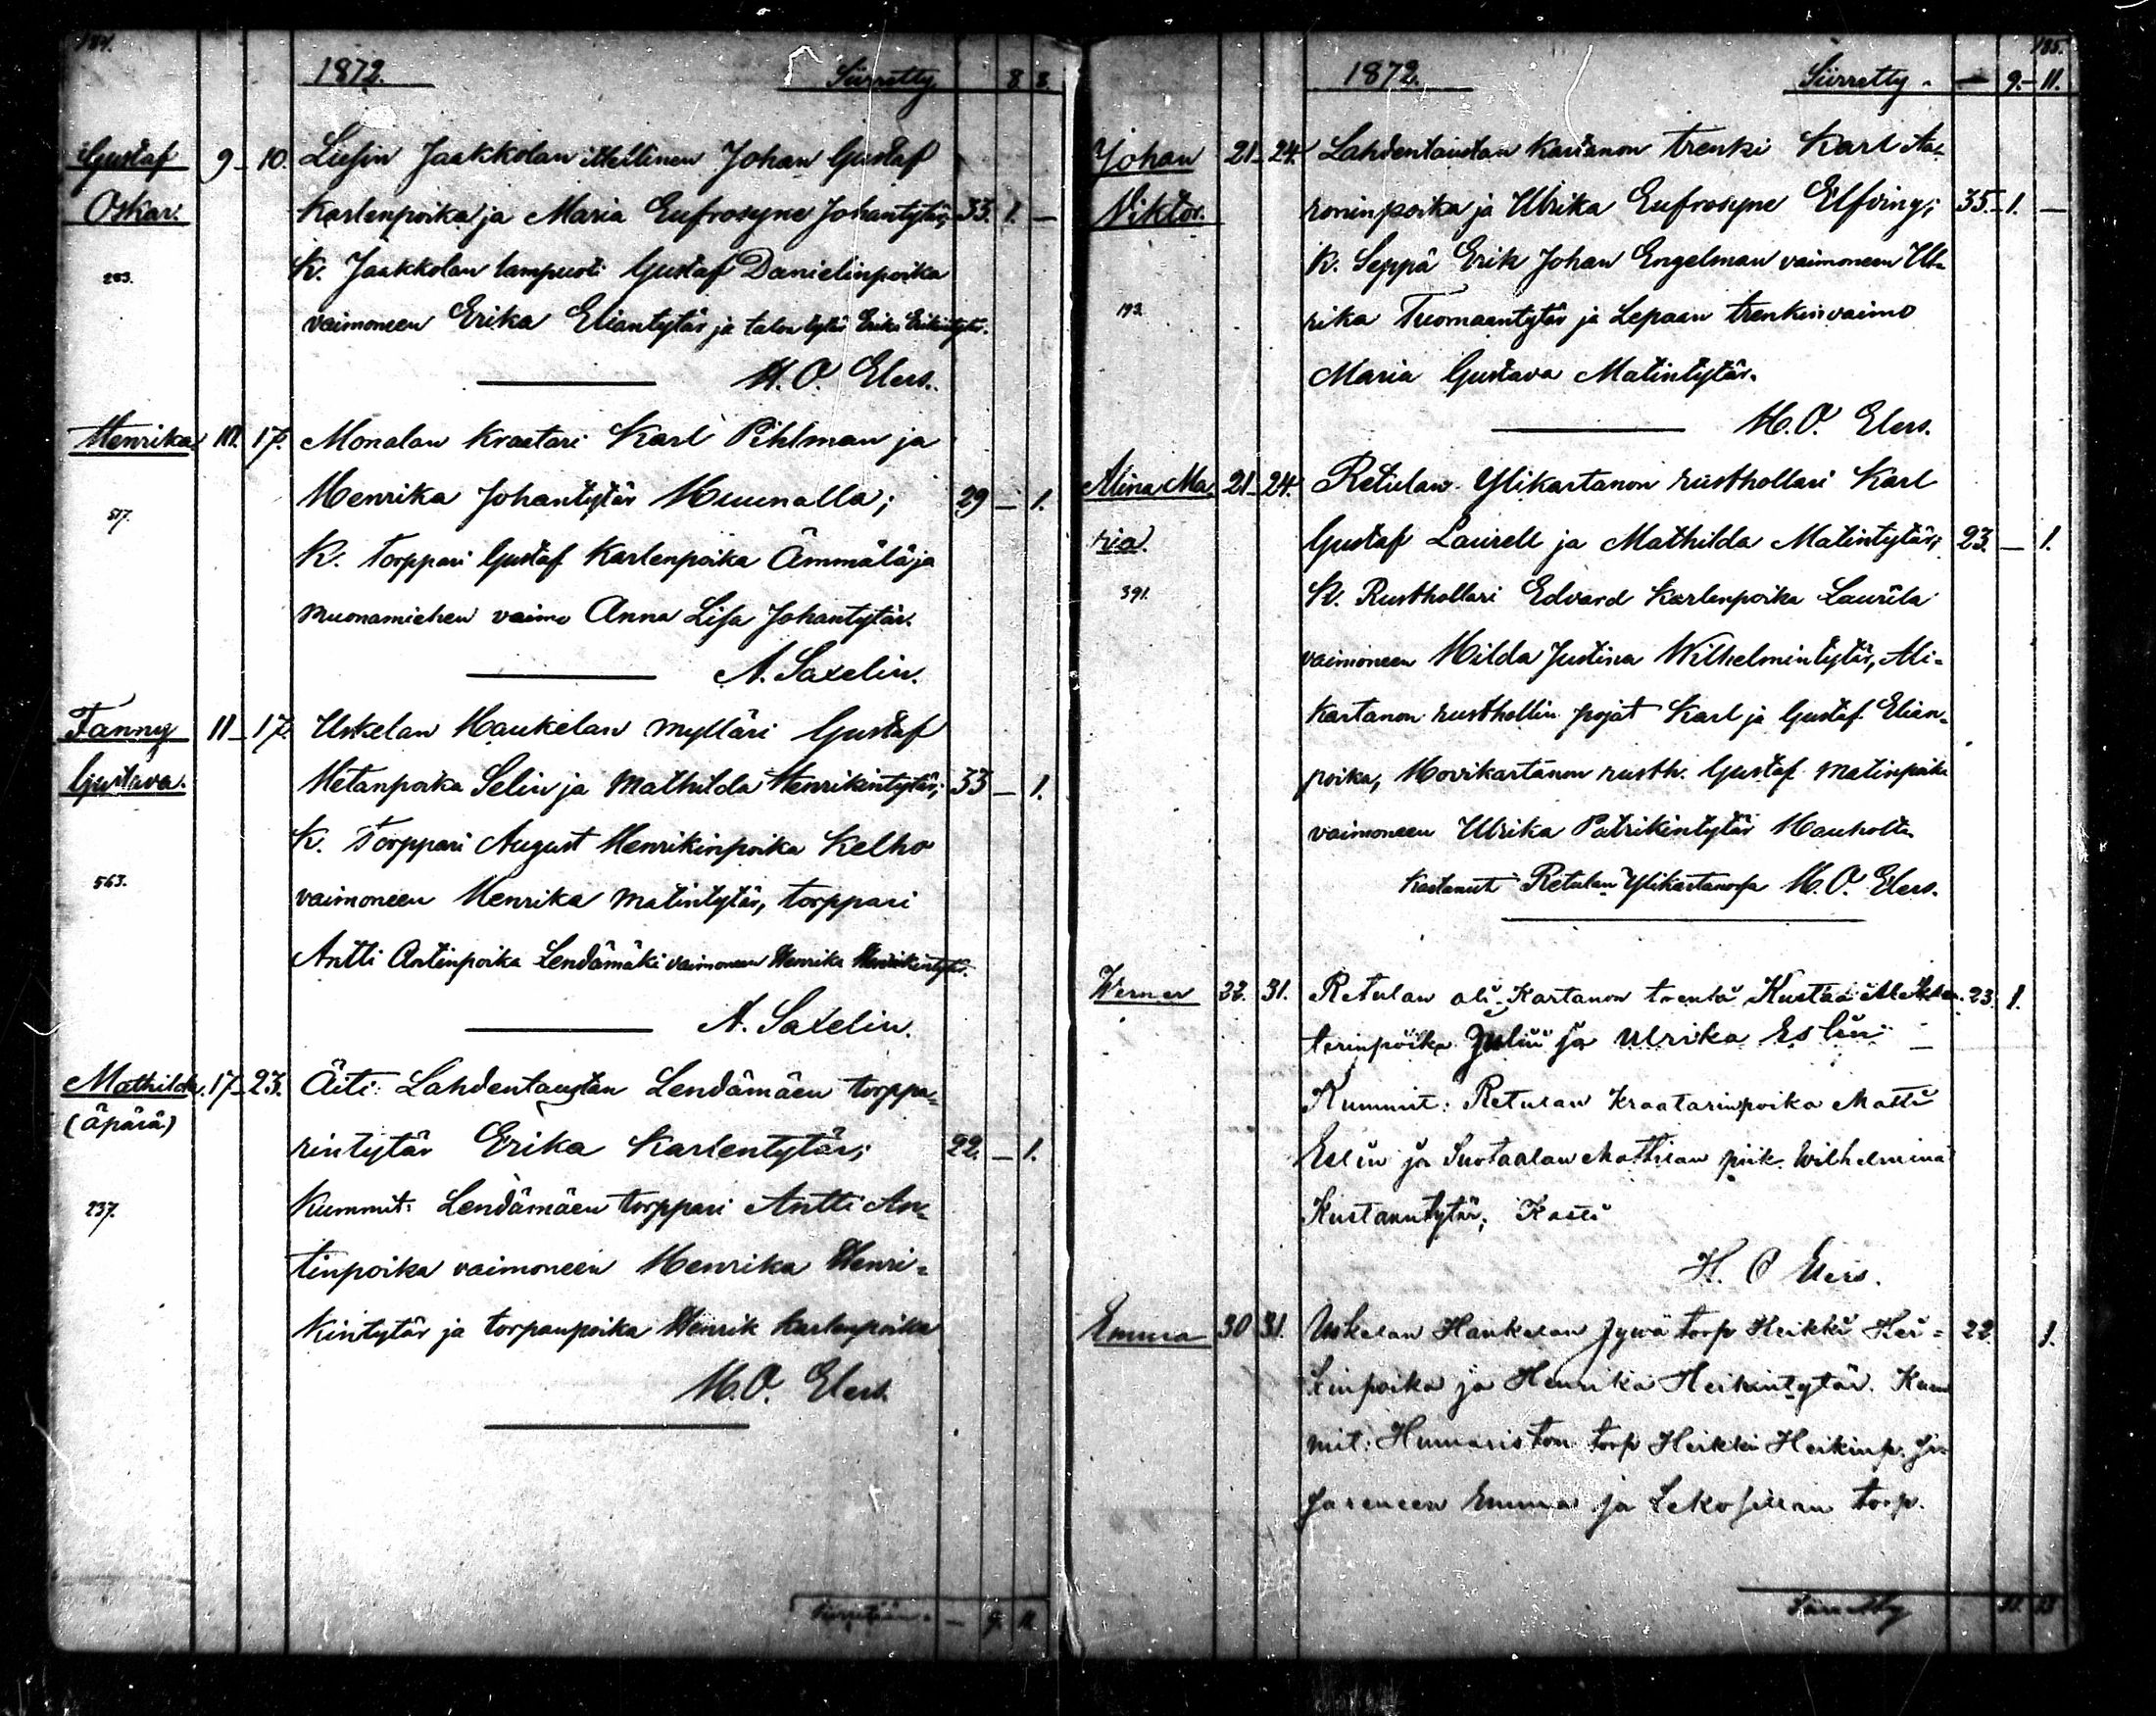 184.
1872. Siirretty 8. 8.
Gustaf 9 - 10. Lusin Jaakkolan itsellinen Johan Gustaf
Oskar. Karlenpoika ja Maria Eufrosyne Johantytär; 33. 1. —
283. K. Jaakkolan lampuoti Gustaf Danielinpoika
vaimoneen Erika Eliantytär ja talon tytär Erika Erikintytär.
H. O. Elers.
Henrika 10. 17. Monalan kraatari Karl Pihlman ja
Henrika Johantytär Huunalla; 29 — 1.
517. K. Torppari Gustaf Karlenpoika Ämmälä ja
muonamiehen vaimo Anna Lisa Johantytär.
A. Saxelin.
Fanny 11 - 17. Uskelan Haukelan mylläri Gustaf
Gustava. Metanpoika Selin ja Mathilda Henrikintytär; 33 — 1.
K. Torppari August Henrikinpoika Kelho
563. vaimoneen Henrika Matintytär, torppari
Antti Antinpoika Lendämäki vaimoneen Henrika Henrikintytär.
A. Saxelin.
Mathilda. 17 - 23. Äiti: Lahdentaustan Lendämäen torppa-
(äpärä)
rintytär Erika Karlentytär; 22. — 1.
237. Kummit: Lendämäen torppari Antti An-
tinpoika vaimoneen Henrika Henri-
kintytär ja torpanpoika Henrik Karlenpoika
H. O. Elers.
Siirretään — 9. 11.
185.
1872. Siirretty — 9. - 11.
Johan 21 - 24. Lahdentaustan Kartanon trenki Karl Aa-
Viktor. roninpoika ja Ulrika Eufrosyne Elfving; 35. - 1. —
K. Seppä Erik Johan Engelman vaimoneen Ul-
193. rika Tuomaantytär ja Lepaan trenkin vaimo
Maria Gustava Matintytär.
H. O. Elers.
Alina Ma- 21 - 24. Retulan Ylikartanon rusthollari Karl
ria. Gustaf Laurell ja Mathilda Matintytär; 23. — 1.
391. K. Rusthollari Edvard Karlenpoika Laurila
vaimoneen Hilda Justina Wilhelmintytär, Ali-
kartanon rusthollin pojat Karl ja Gustaf Elian-
poika, Hovikartanon rusth. Gustaf Matinpoika
vaimoneen Ulrika Patrikintytär Hauholta
Kastanut Retulan Ylikartanossa H. O. Elers.
Werner 22. 31. Retulan ali-Kartanon trenki Kustaa 23. 1.
terinpoika Juliu ja Ulrika Eslin —
Kummit: Retulan Kraatarinpoika Matti
Eslin ja Suotaalan Mattilan piik. Wilhelmina
Kustaantytär; Kasti
H. O Elers.
Emma 30 31. Uskelan Haukelan Jywä torp Heikki Hei- 22. 1.
kinpoika ja Henrika Heikintytär. Kum
mit: Humariston torp Heikki Heikinp. si-
sareneen Emma ja torp.
Siirretty